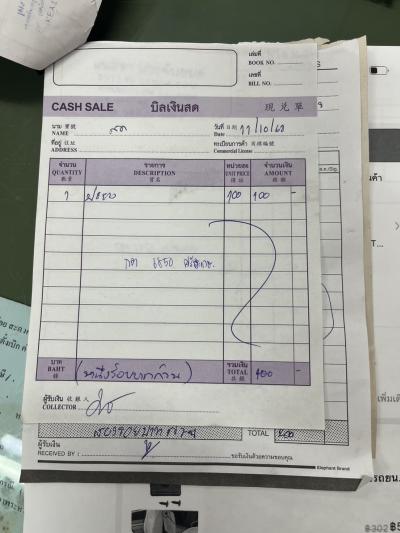 เล่มที่
BOOK NO.
เลขที่
BILL NO.
CASH SALE บิลเงินสด 現兌單
นาม 寶號
NAME สด
วันที่ 日期
Date 11/10/68
ที่อยู่ 住址
ADDRESS
ทะเบียนการค้า 商標編號
Commercial License
จำนวน
QUANTITY
數量
รายการ
DESCRIPTION
貨名
หน่วยละ
UNIT PRICE
價格
จำนวนเงิน
AMOUNT
銀額
1 100 100 -
6850
บาท
BAHT
銖
(หนึ่งร้อยบาทถ้วน)
รวมเงิน
TOTAL
共銀
100 -
ผู้รับเงิน 收銀人
COLLECTOR
สองร้อยบาทถ้วน
TOTAL 200
ผู้รับเงิน
RECEIVED BY :
ขอรับเงินด้วยความขอบคุณ
Elephant Brand
เพิ่มเติ
รถยน
฿302